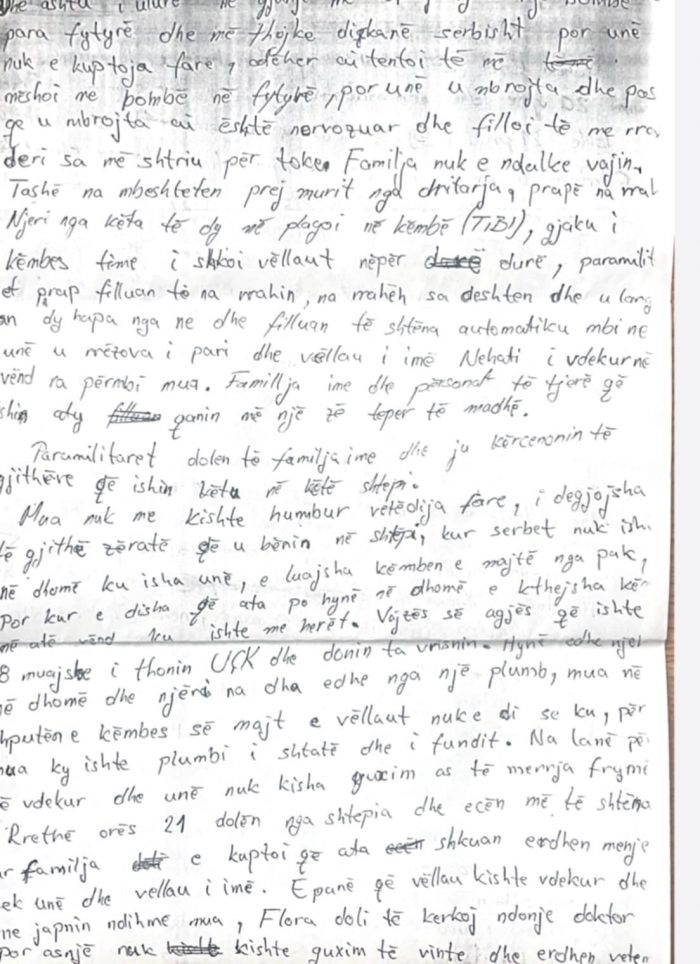 dhe ashtu i ulur në bombë
para fytyrë dhe më thojke diçkanë serbisht por unë
nuk e kuptoja fare, atëher ai tentoi të më
mëshoi me bombë në fytyrë, por unë u mbrojta dhe pas
qe u mbrojta ai është nervozuar dhe filloi të me rra
deri sa më shtriu për toke. Familja nuk e ndalke vajin.
Tashë na mbeshteten prej murit nga dritarja, prapë na rrah
Njeri nga këta të dy më plagoi në këmbë (TiBI), gjaku i
këmbes time i shkoi vëllaut nëper durë, paramilit
et prap filluan të na rrahin, na rrahëh sa deshten dhe u larg
an dy hapa nga ne dhe filluan të shtëna automatiku mbi ne
unë u rrëzova i pari dhe vëllau i imë Nehati i vdekur në
vënd ra përmbi mua. Familja ime dhe personat të tjerë që
shin aty qanin më një zë teper të madhë.
Paramilitaret dolen të familja ime dhe ju kërcenonin të
gjithëve që ishin këtu në këtë shtepi.
Mua nuk me kishte humbur vetëdija fare, i degjojsha
të gjithë zëratë që u bënin në shtëpi, kur serbet nuk ish
në dhomë ku isha unë, e luajsha këmben e majtë nga pak,
por kur e disha që ata po hynë në dhomë e kthejsha kën
në atë vënd ku ishte me herët. Vajzës së agjës që ishte
8 muajshe i thonin UÇK dhe donin ta vrisnin. Hynë edhe njel
ë dhomë dhe njëri na dha edhe nga një plumb, mua në
hputën e këmbes së majt e vëllaut nuk e di se ku, për
mua ky ishte plumbi i shtatë dhe i fundit. Na lanë pë
ë vdekur dhe unë nuk kisha guxim as të merrja frymë
Rrethë orës 21 dolën nga shtepia dhe ecën më të shtëna
r familja e kuptoi që ata shkuan erdhen menje
ek unë dhe vellau i imë. E panë që vëllau kishte vdekur dhe
me japnin ndihme mua, Flora doli të kerkoj ndonje doktor
por asnjë nuk kishte guxim të vinte, dhe erdhen veten